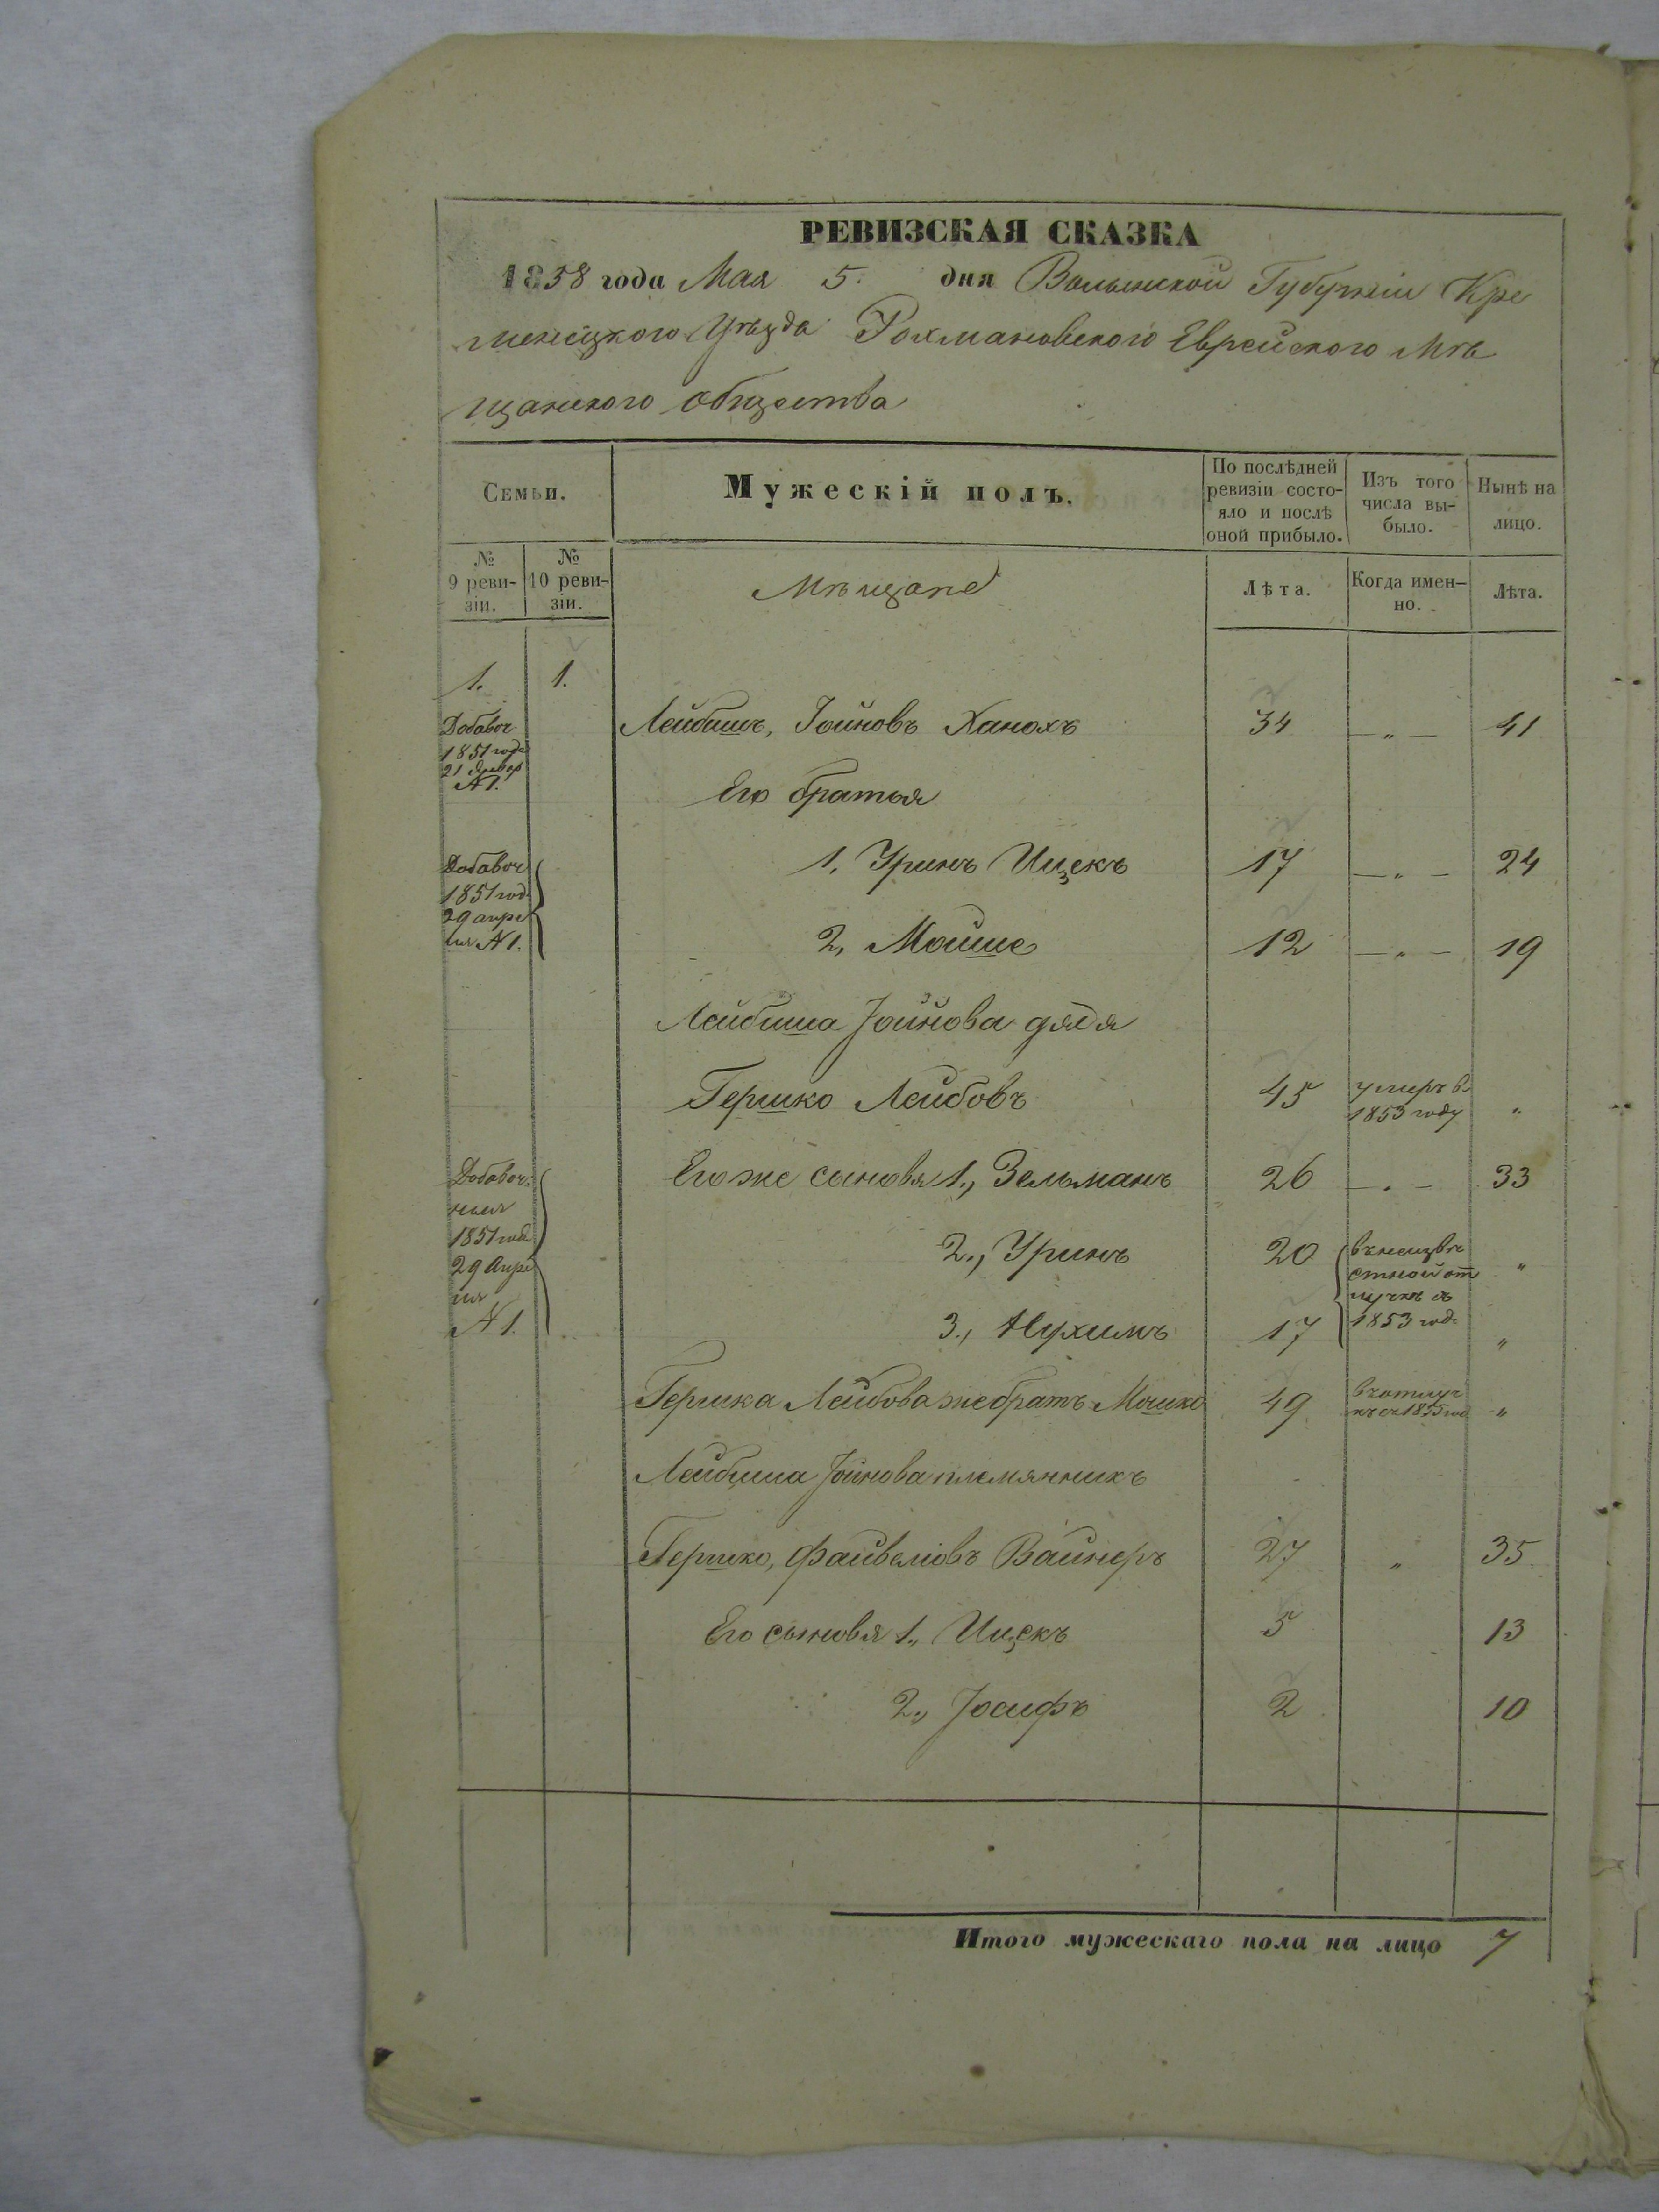 РЕВИЗСКАЯ СКАЗКА
1858 года Мая 5. дня Волынской Губерніи Кре
менецкого Уѣзда Рохмановского Еврейского Мѣ
щанского общества
Семьи.
Мужескій полъ.
По послѣдней
ревизіи состо-
яло и послѣ
оной прибыло.
Изъ того
числа вы-
было.
Нынѣ на
лицо.
№
9 реви-
зіи.
№
10 реви-
зіи.
Мѣщане
Лѣта.
Когда имен-
но.
Лѣта.
1. 1.
Добавоч
1851 года
21 Январ
№ 1.
Лейбишъ, Іойновъ Ханохъ 34 — „ — 41
Его братья
Добавоч
1851 год.
29 апре
ля № 1.
1, Уринъ Ицекъ 17 — „ — 24
2, Мойше 12 — „ — 19
Лейбиша Іойнова дядя
Гершко Лейбовъ 45 умеръ в
1853 году „
Добавоч.
ныя
1851 год
29 Апре
ля
№ 1.
Его же сыновья 1., Зельманъ 26 — „ — 33
2., Уринъ 20 въ неизвѣ
стной от
лучкѣ съ
1853 год. „
3., Нухимъ 17 „
Гершка Лейбова же братъ Мошко 49 въ отлуч
кѣ съ 1855 год „
Лейбиша Іойнова племянникъ
Гершко, Файвелiовъ Вайнеръ 27 „ 35.
Его сыновья 1., Ицекъ 5 13
2., Іосифъ 2 10
Итого мужескаго пола на лицо 7